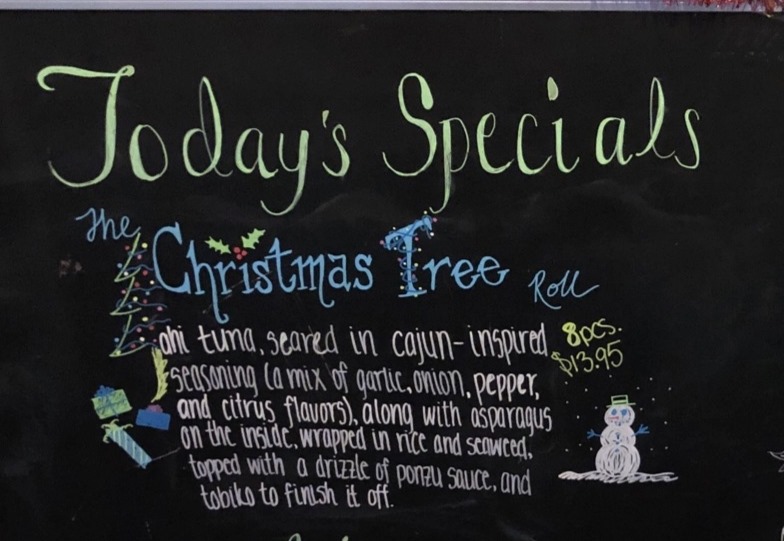 Today's Specials
The
Christmas Tree Roll
ahi tuna, seared in cajun-inspired
seasoning (a mix of garlic, onion, pepper,
and citrus flavors), along with asparagus
on the inside, wrapped in rice and seaweed,
topped with a drizzle of ponzu sauce, and
tobiko to finish it off.
8pcs.
$13.95